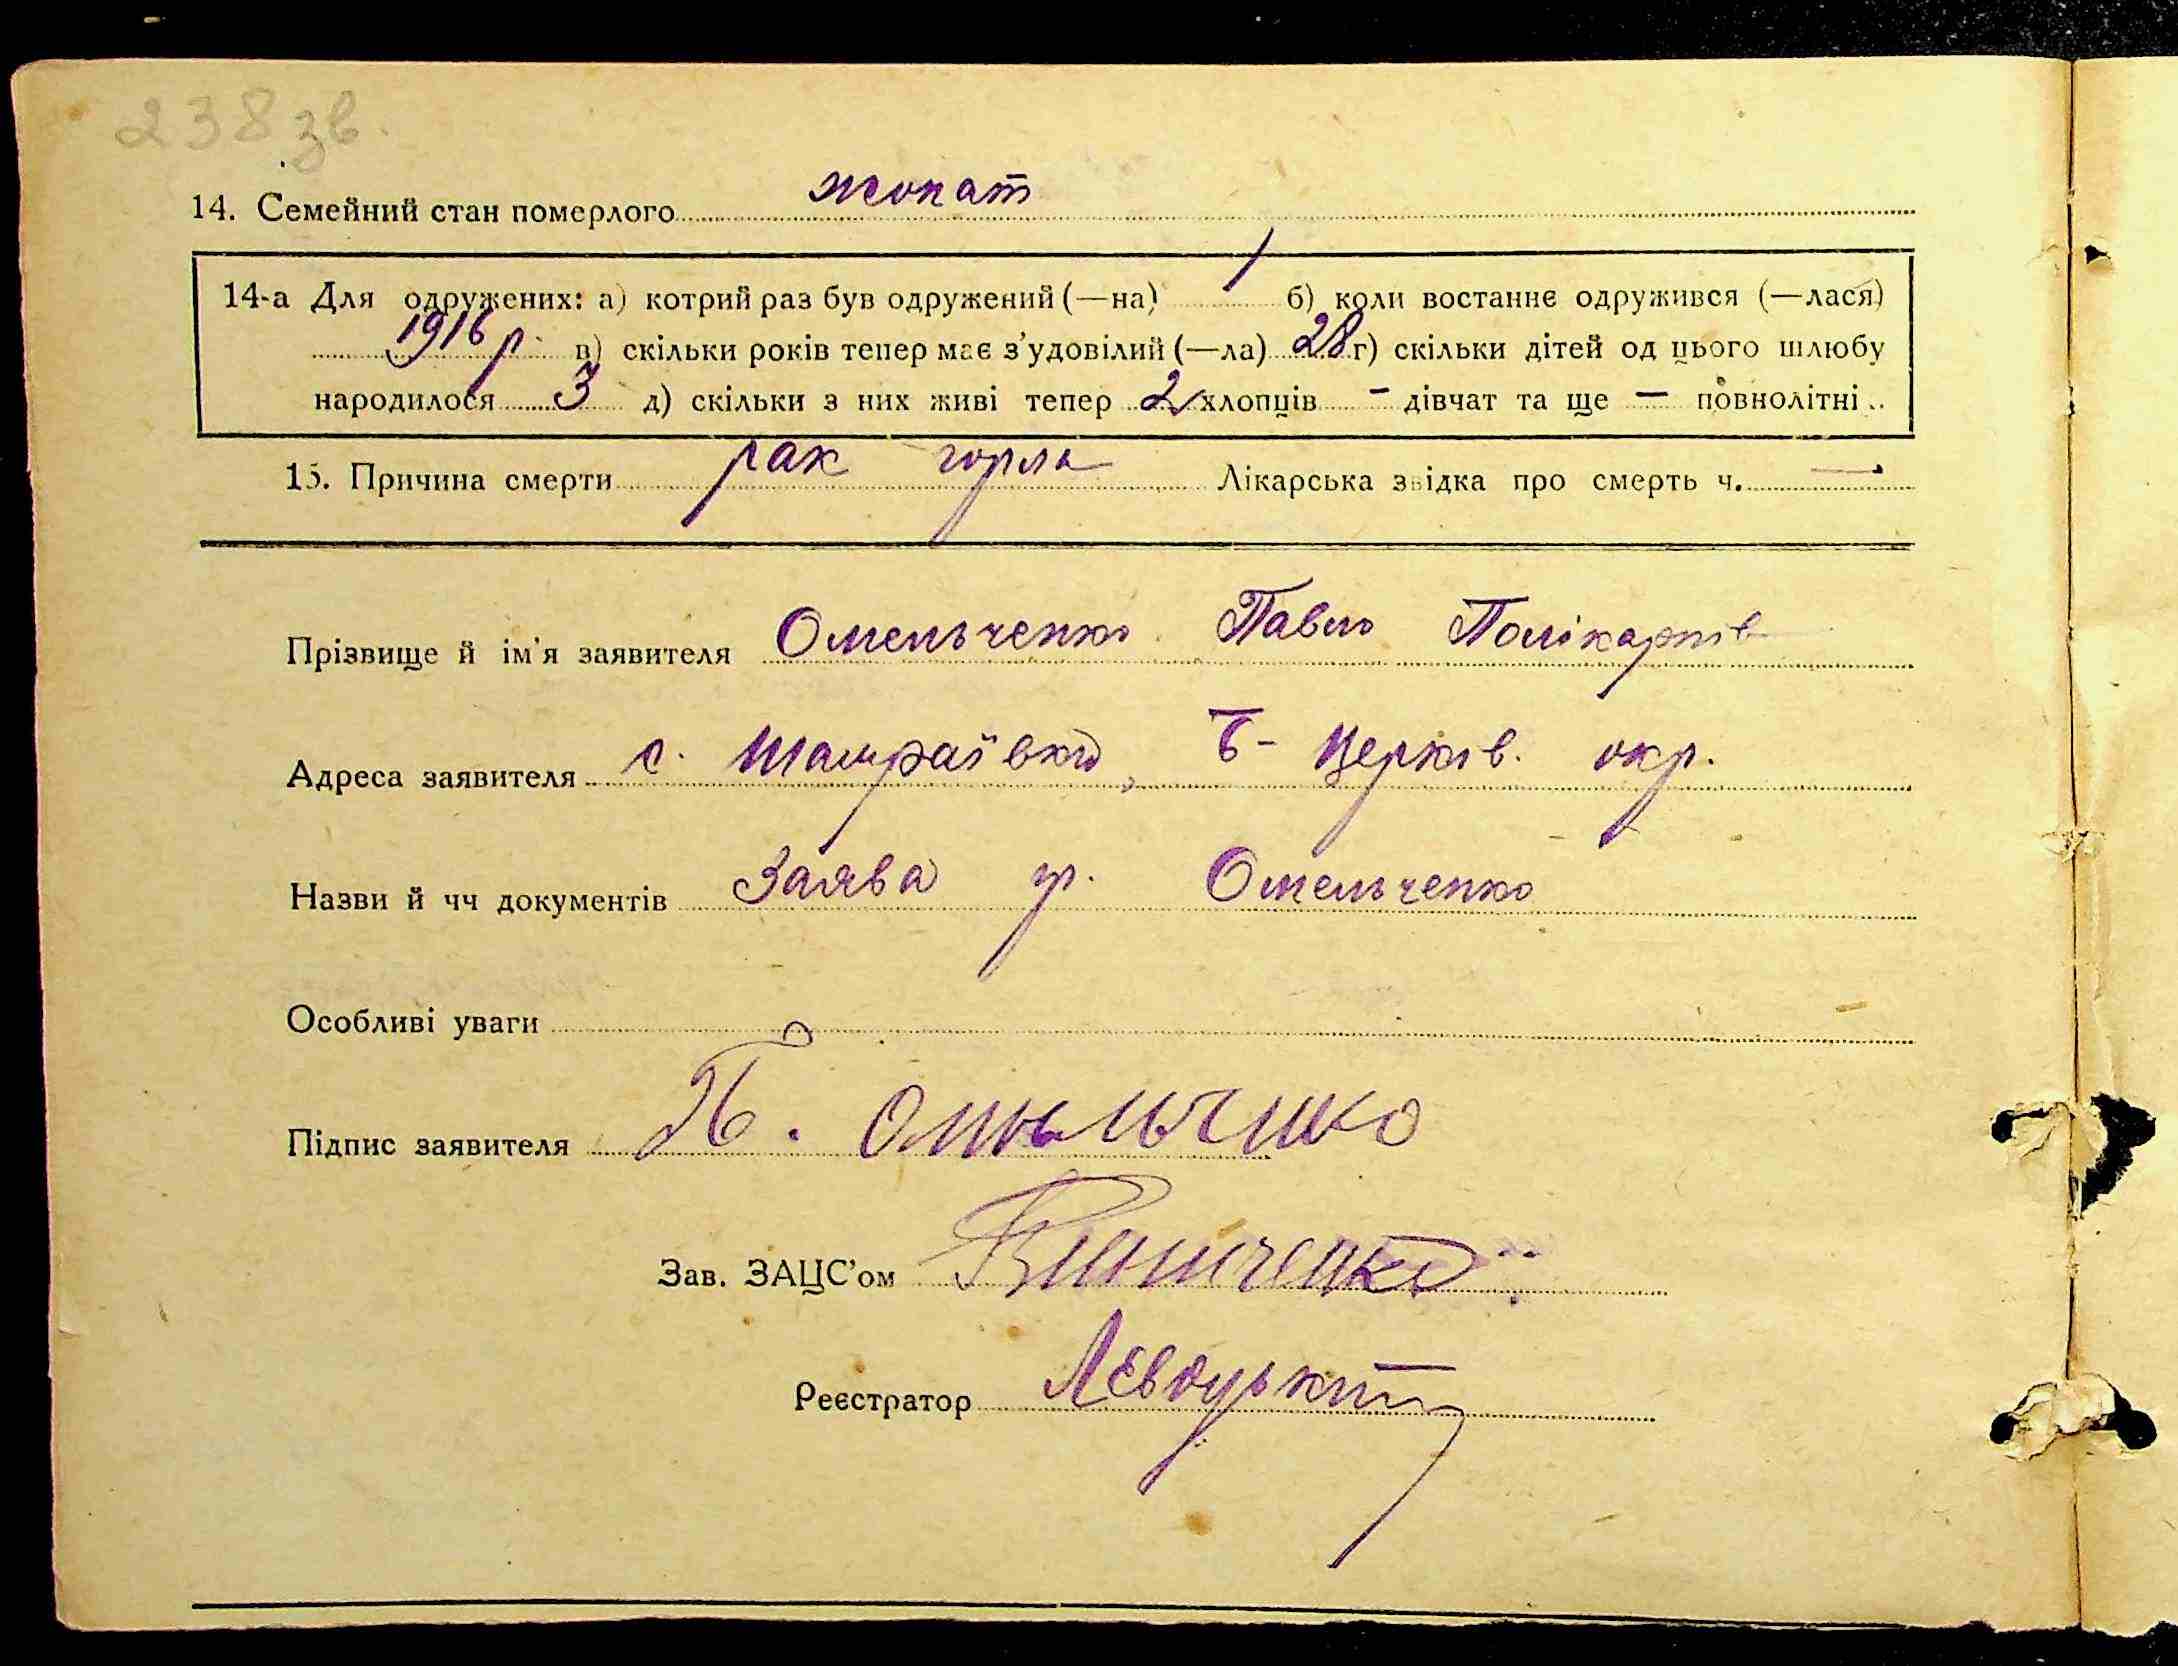 238 зв.
14. Семейний стан померлого жонат
14-а Для одружених: а) котрий раз був одружений (—на) 1 б) коли востаннє одружився (—лася)
1916 р. в) скільки років тепер має з’удовілий (—ла) 28 г) скільки дітей од цього шлюбу
народилося 3 д) скільки з них живі тепер 2 хлопців - дівчат та ще — повнолітні..
15. Причина смерти рак горла Лікарська звідка про смерть ч. —
Прізвище й ім’я заявителя Омельченко Павло Полікарпів
Адреса заявителя с. Шамраївка, Б-Церків. окр.
Назви й чч документів Заява гр. Омельченко
Особливі уваги
Підпис заявителя П.
Зав. ЗАЦС’ом Винниченко
Реєстратор